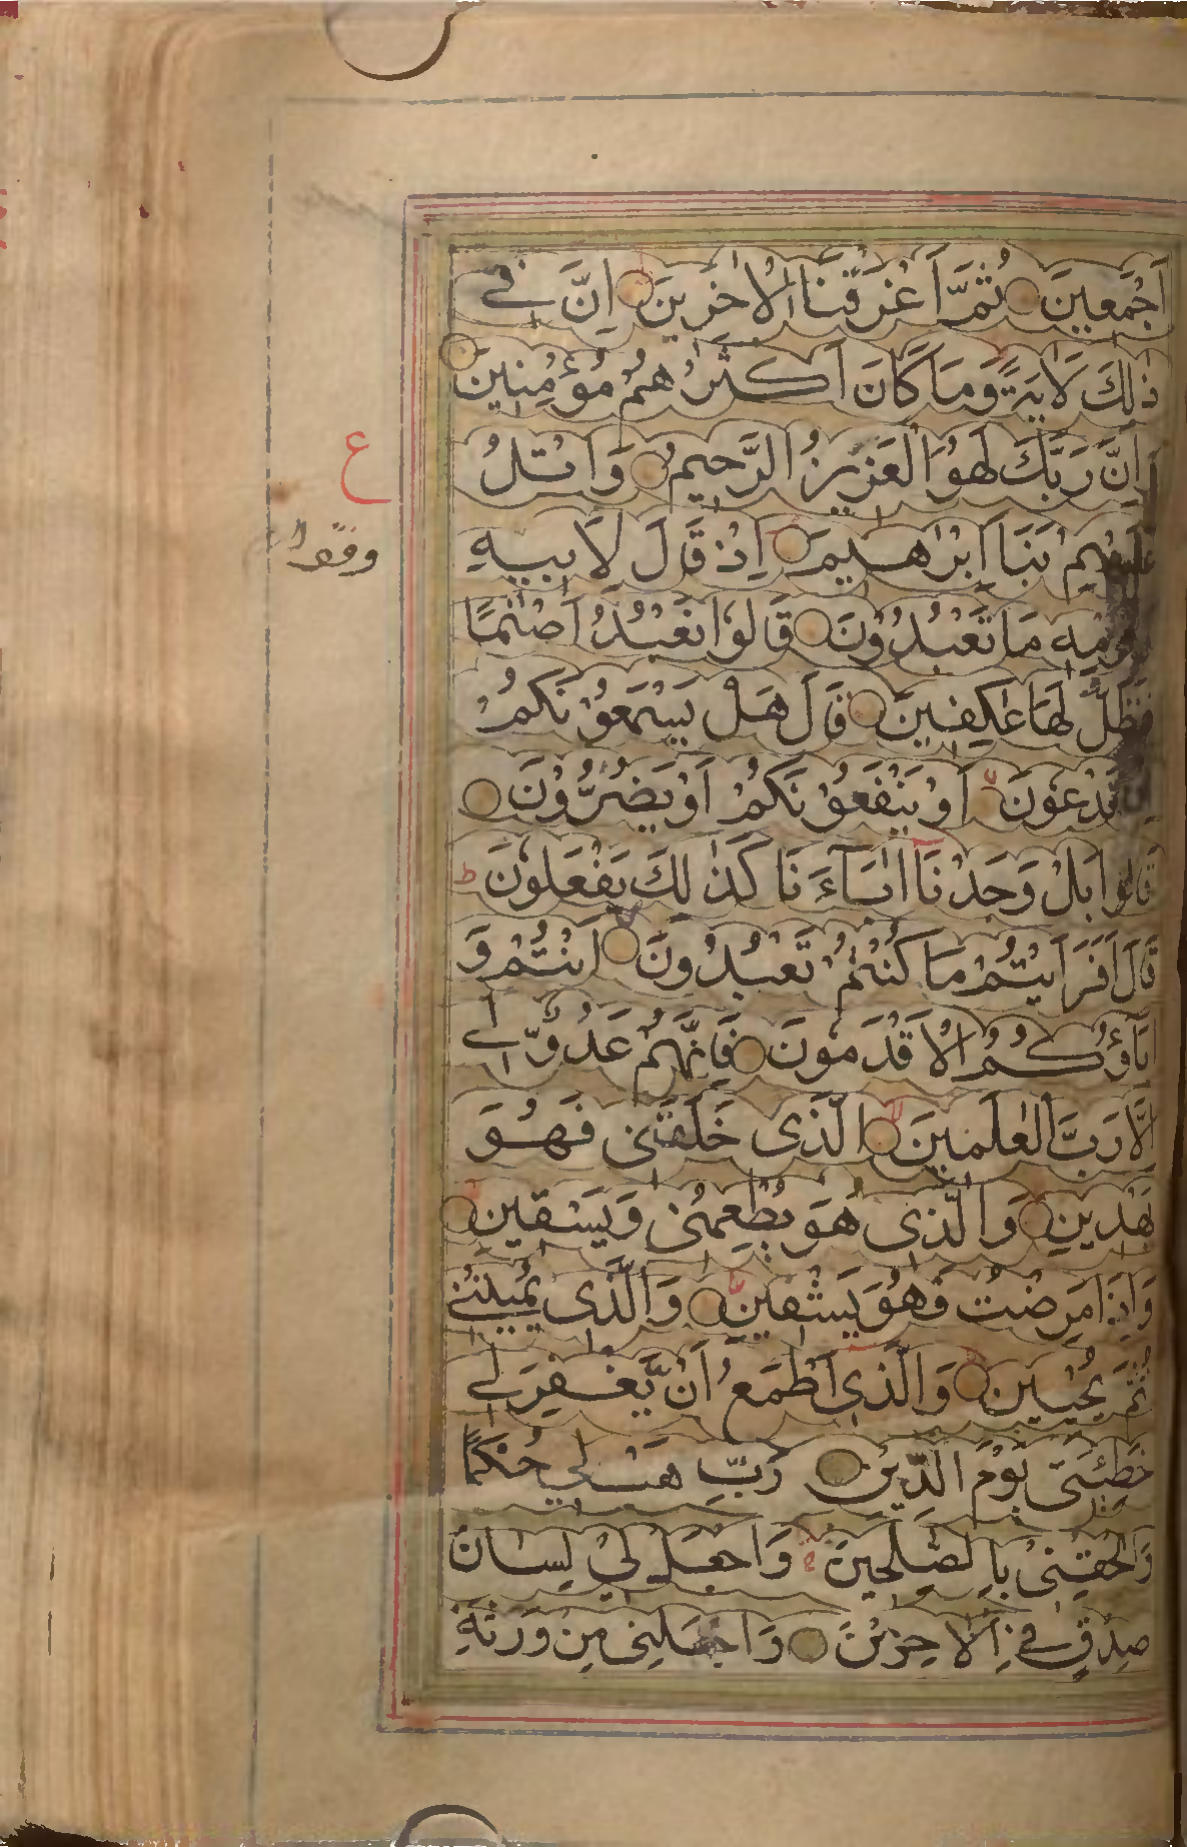 اَجْمَعِينَ ثُمَّ اَغْرَقْنَا الْاٰخَرِينَ اِنَّ فِے
ذٰلِكَ لَاٰيَةً وَمَا كَانَ اَكْثَرُهُمْ مُؤْمِنِينَ
اِنَّ رَبَّكَ لَهُوَ الْعَزِيزُ الرَّحِيمُ وَاتْلُ
عَلَيْهِمْ نَبَاَ اِبْرٰهِيمَ اِذْ قَالَ لِاَبِيهِ
وَقَوْمِهٖ مَا تَعْبُدُوْنَ قَالُوْا نَعْبُدُ اَصْنَامًا
فَنَظَلُّ لَهَا عٰكِفِينَ قَالَ هَلْ يَسْمَعُوْنَكُمْ
اِذْ تَدْعُوْنَ اَوْ يَنْفَعُوْنَكُمْ اَوْ يَضُرُّوْنَ
قَالُوا بَلْ وَجَدْنَا اٰبَآءَنَا كَذٰلِكَ يَفْعَلُوْنَ ط
قَالَ اَفَرَاَيْتُمْ مَا كُنْتُمْ تَعْبُدُوْنَ اَنْتُمْ وَ
اٰبَآؤُكُمُ الْاَقْدَمُوْنَ فَاِنَّهُمْ عَدُوٌّ لِے
اِلَّا رَبَّ الْعٰلَمِينَ الَّذِى خَلَقَنِى فَهُوَ
يَهْدِينِ وَالَّذِى هُوَ يُطْعِمُنِى وَيَسْقِينِ
وَاِذَا مَرِضْتُ فَهُوَ يَشْفِينِ وَالَّذِى يُمِيتُنِے
ثُمَّ يُحْيِينِ وَالَّذِى اَطْمَعُ اَنْ يَّغْفِرَ لِے
خَطِيْئَتِى يَوْمَ الدِّينِ رَبِّ هَبْ لِى حُكْمًا
وَاَلْحِقْنِى بِالصّٰلِحِينَ وَاجْعَلْ لِىْ لِسَانَ
صِدْقٍ فِے الْاٰخِرِينَ وَاجْعَلْنِى مِنْ وَرَثَةِ
ع
وقفوا